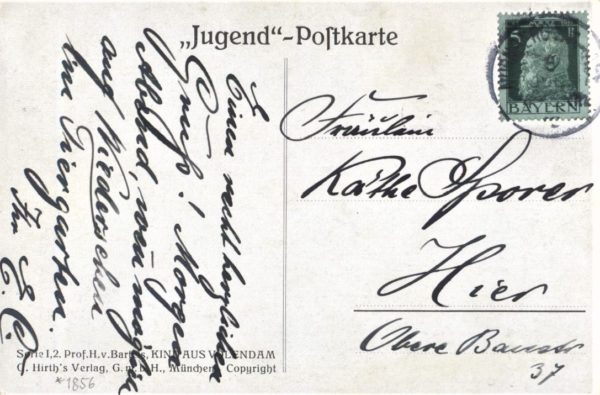 „Jugend“-Postkarte
5
BAYERN
Einen recht herzlichen
Gruß! Morgen
Abend, wenn möglich
auf Wiedersehen
im Tiergarten.
Ihr E.
Fräulein
Käthe Sporer
Hier
Obere Baustr
37
Serie I,2. Prof. H. v. Bartels, KIND AUS VOLENDAM
G. Hirth's Verlag, G. m. b. H., München. Copyright
*1856